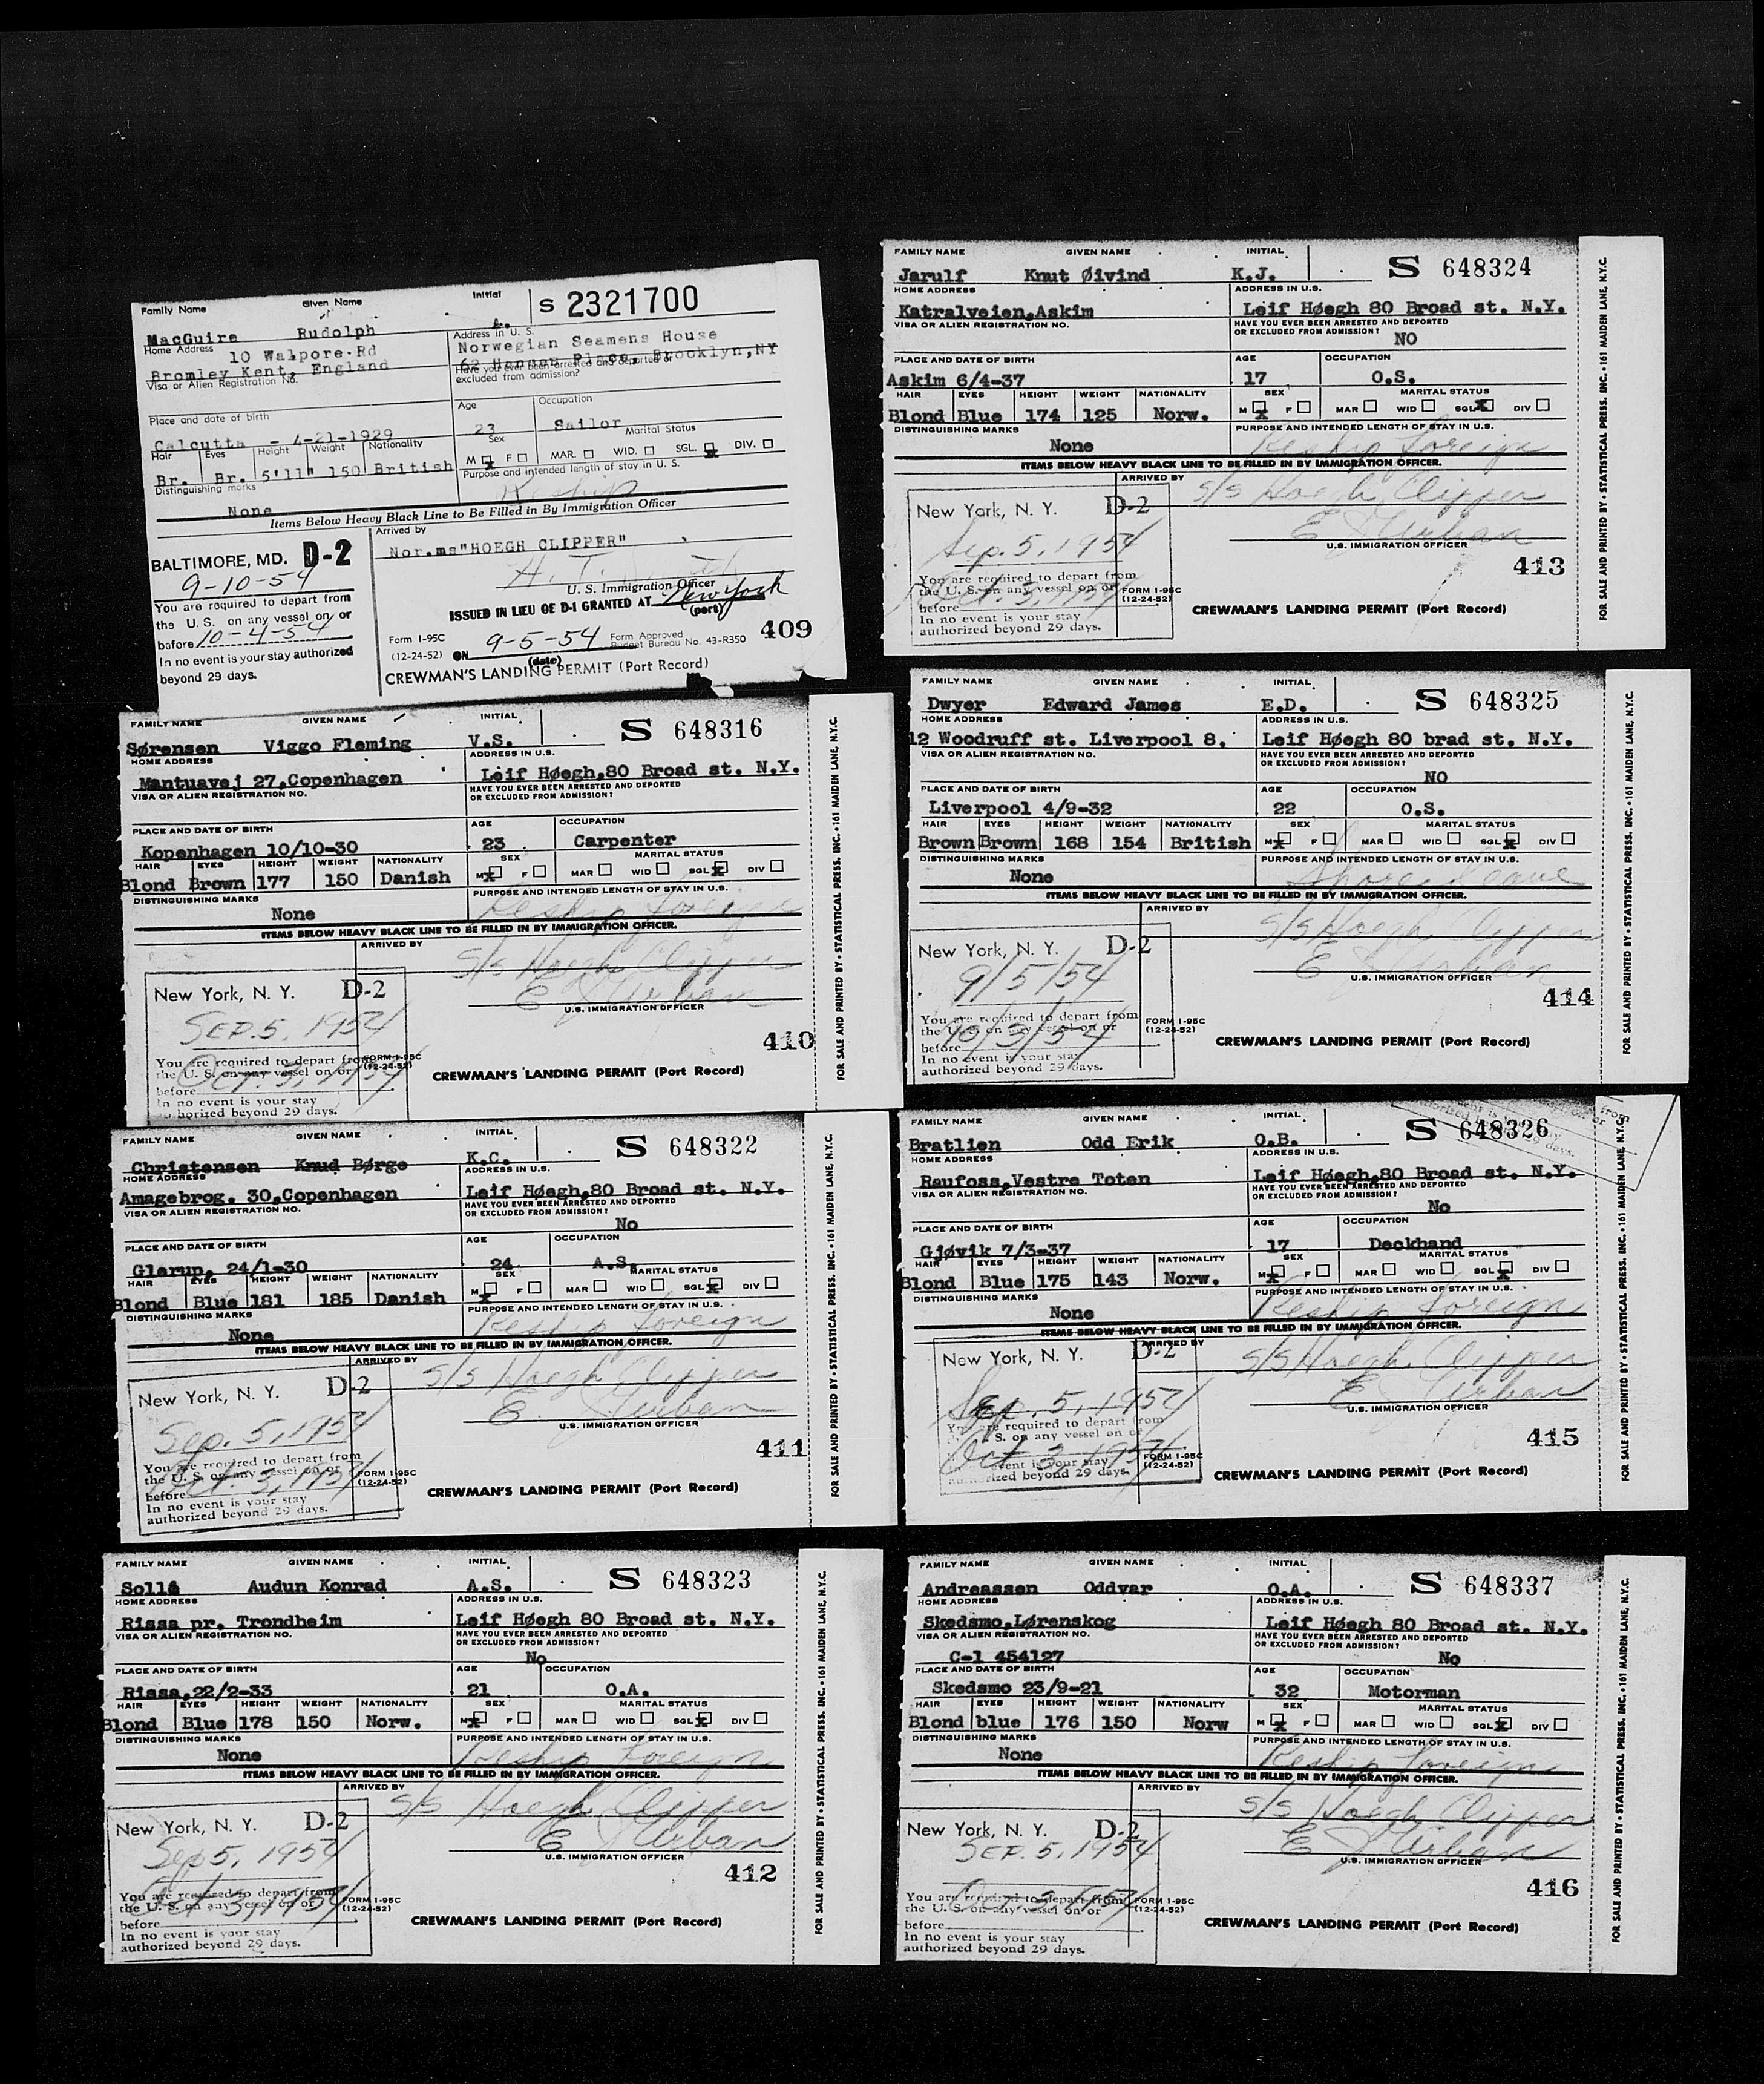 Family Name Given Name Initial S 2321700
MacGuire Rudolph A.
Home Address Address in U. S.
10 Walpore Rd Norwegian Seamens House
Bromley Kent, England 62 Hanson Place, Brooklyn,NY
Visa or Alien Registration No. Have you ever been arrested and deported or
excluded from admission?
Place and date of birth Age Occupation
Calcutta - 4-21-1929 23 Sailor
Hair Eyes Height Weight Nationality Sex Marital Status
Br. Br. 5'11" 150 British M X F MAR. WID. SGL. X DIV.
Distinguishing marks Purpose and intended length of stay in U. S.
None Reship
Items Below Heavy Black Line to Be Filled in By Immigration Officer
BALTIMORE, MD. D-2 Arrived by
9-10-54 Nor.ms"HOEGH CLIPPER"
H. T.
U. S. Immigration Officer
You are required to depart from ISSUED IN LIEU OF D-1 GRANTED AT New York
the U. S. on any vessel on or (port)
before 10-4-54 Form I-95C (12-24-52) ON 9-5-54 (date) Form Approved Budget Bureau No. 43-R350 409
In no event is your stay authorized
beyond 29 days. CREWMAN'S LANDING PERMIT (Port Record)
FAMILY NAME GIVEN NAME INITIAL S 648316
Sørensen Viggo Fleming V.S.
HOME ADDRESS ADDRESS IN U.S.
Mantuavej 27,Copenhagen Leif Høegh,80 Broad st. N.Y.
VISA OR ALIEN REGISTRATION NO. HAVE YOU EVER BEEN ARRESTED AND DEPORTED
OR EXCLUDED FROM ADMISSION?
PLACE AND DATE OF BIRTH AGE OCCUPATION
Kopenhagen 10/10-30 23 Carpenter
HAIR EYES HEIGHT WEIGHT NATIONALITY SEX MARITAL STATUS
Blond Brown 177 150 Danish M X F MAR WID SGL X DIV
DISTINGUISHING MARKS PURPOSE AND INTENDED LENGTH OF STAY IN U.S.
None Reship foreign
ITEMS BELOW HEAVY BLACK LINE TO BE FILLED IN BY IMMIGRATION OFFICER.
ARRIVED BY
S/S Hoegh Clipper
New York, N. Y. D-2 E J Urban
U.S. IMMIGRATION OFFICER
SEP. 5, 1954
410
You are required to depart from FORM I-95C
the U. S. on any vessel on or (12-24-52)
before Oct. 3, 1954 CREWMAN'S LANDING PERMIT (Port Record)
In no event is your stay
authorized beyond 29 days.
FOR SALE AND PRINTED BY • STATISTICAL PRESS. INC. • 161 MAIDEN LANE, N.Y.C.
FAMILY NAME GIVEN NAME INITIAL S 648322
Christensen Knud Børge K.C.
HOME ADDRESS ADDRESS IN U.S.
Amagebrog. 30,Copenhagen Leif Høegh,80 Broad st. N.Y.
VISA OR ALIEN REGISTRATION NO. HAVE YOU EVER BEEN ARRESTED AND DEPORTED
OR EXCLUDED FROM ADMISSION?
No
PLACE AND DATE OF BIRTH AGE OCCUPATION
Glerup, 24/1-30 24 A.S.
HAIR EYES HEIGHT WEIGHT NATIONALITY SEX MARITAL STATUS
Blond Blue 181 185 Danish M X F MAR WID SGL X DIV
DISTINGUISHING MARKS PURPOSE AND INTENDED LENGTH OF STAY IN U.S.
None Reship foreign
ITEMS BELOW HEAVY BLACK LINE TO BE FILLED IN BY IMMIGRATION OFFICER.
ARRIVED BY
S/S Hoegh Clipper
New York, N. Y. D-2 E J Urban
U.S. IMMIGRATION OFFICER
Sep. 5, 1954
411
You are required to depart from FORM I-95C
the U. S. on any vessel on or (12-24-52)
before Oct. 3, 1954 CREWMAN'S LANDING PERMIT (Port Record)
In no event is your stay
authorized beyond 29 days.
FOR SALE AND PRINTED BY • STATISTICAL PRESS. INC. • 161 MAIDEN LANE, N.Y.C.
FAMILY NAME GIVEN NAME INITIAL S 648323
Sollé Audun Konrad A.S.
HOME ADDRESS ADDRESS IN U.S.
Rissa pr. Trondheim Leif Høegh 80 Broad st. N.Y.
VISA OR ALIEN REGISTRATION NO. HAVE YOU EVER BEEN ARRESTED AND DEPORTED
OR EXCLUDED FROM ADMISSION?
No
PLACE AND DATE OF BIRTH AGE OCCUPATION
Rissa,22/2-33 21 O.A.
HAIR EYES HEIGHT WEIGHT NATIONALITY SEX MARITAL STATUS
Blond Blue 178 150 Norw. M X F MAR WID SGL X DIV
DISTINGUISHING MARKS PURPOSE AND INTENDED LENGTH OF STAY IN U.S.
None Reship foreign
ITEMS BELOW HEAVY BLACK LINE TO BE FILLED IN BY IMMIGRATION OFFICER.
ARRIVED BY
S/S Hoegh Clipper
New York, N. Y. D-2 E J Urban
U.S. IMMIGRATION OFFICER
Sep 5, 1954
412
You are required to depart from FORM I-95C
the U. S. on any vessel on or (12-24-52)
before Oct 3, 1954 CREWMAN'S LANDING PERMIT (Port Record)
In no event is your stay
authorized beyond 29 days.
FOR SALE AND PRINTED BY • STATISTICAL PRESS. INC. • 161 MAIDEN LANE, N.Y.C.
FAMILY NAME GIVEN NAME INITIAL S 648324
Jarulf Knut Øivind K.J.
HOME ADDRESS ADDRESS IN U.S.
Katralveien,Askim Leif Høegh 80 Broad st. N.Y.
VISA OR ALIEN REGISTRATION NO. HAVE YOU EVER BEEN ARRESTED AND DEPORTED
OR EXCLUDED FROM ADMISSION?
NO
PLACE AND DATE OF BIRTH AGE OCCUPATION
Askim 6/4-37 17 O.S.
HAIR EYES HEIGHT WEIGHT NATIONALITY SEX MARITAL STATUS
Blond Blue 174 125 Norw. M X F MAR WID SGL X DIV
DISTINGUISHING MARKS PURPOSE AND INTENDED LENGTH OF STAY IN U.S.
None Reship foreign
ITEMS BELOW HEAVY BLACK LINE TO BE FILLED IN BY IMMIGRATION OFFICER.
ARRIVED BY
S/S Hoegh Clipper
New York, N. Y. D-2 E J Urban
U.S. IMMIGRATION OFFICER
Sep. 5, 1954
413
You are required to depart from
the U. S. on any vessel on or FORM I-95C
before Oct. 3, 1954 (12-24-52)
In no event is your stay CREWMAN'S LANDING PERMIT (Port Record)
authorized beyond 29 days.
FOR SALE AND PRINTED BY • STATISTICAL PRESS. INC. • 161 MAIDEN LANE, N.Y.C.
FAMILY NAME GIVEN NAME INITIAL S 648325
Dwyer Edward James E.D.
HOME ADDRESS ADDRESS IN U.S.
12 Woodruff st. Liverpool 8. Leif Høegh 80 brad st. N.Y.
VISA OR ALIEN REGISTRATION NO. HAVE YOU EVER BEEN ARRESTED AND DEPORTED
OR EXCLUDED FROM ADMISSION?
NO
PLACE AND DATE OF BIRTH AGE OCCUPATION
Liverpool 4/9-32 22 O.S.
HAIR EYES HEIGHT WEIGHT NATIONALITY SEX MARITAL STATUS
Brown Brown 168 154 British M X F MAR WID SGL X DIV
DISTINGUISHING MARKS PURPOSE AND INTENDED LENGTH OF STAY IN U.S.
None Shore leave
ITEMS BELOW HEAVY BLACK LINE TO BE FILLED IN BY IMMIGRATION OFFICER.
ARRIVED BY
S/S Hoegh Clipper
New York, N. Y. D-2 E J Urban
U.S. IMMIGRATION OFFICER
9/5/54
414
You are required to depart from FORM I-95C
the U. S. on any vessel on or (12-24-52)
before 10/3/54 CREWMAN'S LANDING PERMIT (Port Record)
In no event is your stay
authorized beyond 29 days.
FOR SALE AND PRINTED BY • STATISTICAL PRESS. INC. • 161 MAIDEN LANE, N.Y.C.
FAMILY NAME GIVEN NAME INITIAL S 648326
Bratlien Odd Erik O.B.
HOME ADDRESS ADDRESS IN U.S.
Raufoss,Vestre Toten Leif Høegh,80 Broad st. N.Y.
VISA OR ALIEN REGISTRATION NO. HAVE YOU EVER BEEN ARRESTED AND DEPORTED
OR EXCLUDED FROM ADMISSION?
No
PLACE AND DATE OF BIRTH AGE OCCUPATION
Gjøvik 7/3-37 17 Deckhand
HAIR EYES HEIGHT WEIGHT NATIONALITY SEX MARITAL STATUS
Blond Blue 175 143 Norw. M X F MAR WID SGL X DIV
DISTINGUISHING MARKS PURPOSE AND INTENDED LENGTH OF STAY IN U.S.
None Reship foreign
ITEMS BELOW HEAVY BLACK LINE TO BE FILLED IN BY IMMIGRATION OFFICER.
New York, N. Y. D-2 ARRIVED BY
S/S Hoegh Clipper
E J Urban
Sep. 5, 1954 U.S. IMMIGRATION OFFICER
You are required to depart from 415
U. S. on any vessel on or
Oct 3, 1954 FORM I-95C
event is your stay (12-24-52)
authorized beyond 29 days. CREWMAN'S LANDING PERMIT (Port Record)
FOR SALE AND PRINTED BY • STATISTICAL PRESS. INC. • 161 MAIDEN LANE, N.Y.C.
FAMILY NAME GIVEN NAME INITIAL S 648337
Andreassen Oddvar O.A.
HOME ADDRESS ADDRESS IN U.S.
Skedsmo,Lørenskog Leif Høegh 80 Broad st. N.Y.
VISA OR ALIEN REGISTRATION NO. HAVE YOU EVER BEEN ARRESTED AND DEPORTED
OR EXCLUDED FROM ADMISSION?
C-1 454127 No
PLACE AND DATE OF BIRTH AGE OCCUPATION
Skedsmo 23/9-21 32 Motorman
HAIR EYES HEIGHT WEIGHT NATIONALITY SEX MARITAL STATUS
Blond blue 176 150 Norw M X F MAR WID SGL X DIV
DISTINGUISHING MARKS PURPOSE AND INTENDED LENGTH OF STAY IN U.S.
None Reship foreign
ITEMS BELOW HEAVY BLACK LINE TO BE FILLED IN BY IMMIGRATION OFFICER.
ARRIVED BY
S/S Hoegh Clipper
New York, N. Y. D-2 E J Urban
SEP. 5, 1954 U.S. IMMIGRATION OFFICER
416
You are required to depart from FORM I-95C
the U. S. on any vessel on or (12-24-52)
before Oct. 3, 1954 CREWMAN'S LANDING PERMIT (Port Record)
In no event is your stay
authorized beyond 29 days.
FOR SALE AND PRINTED BY • STATISTICAL PRESS. INC. • 161 MAIDEN LANE, N.Y.C.